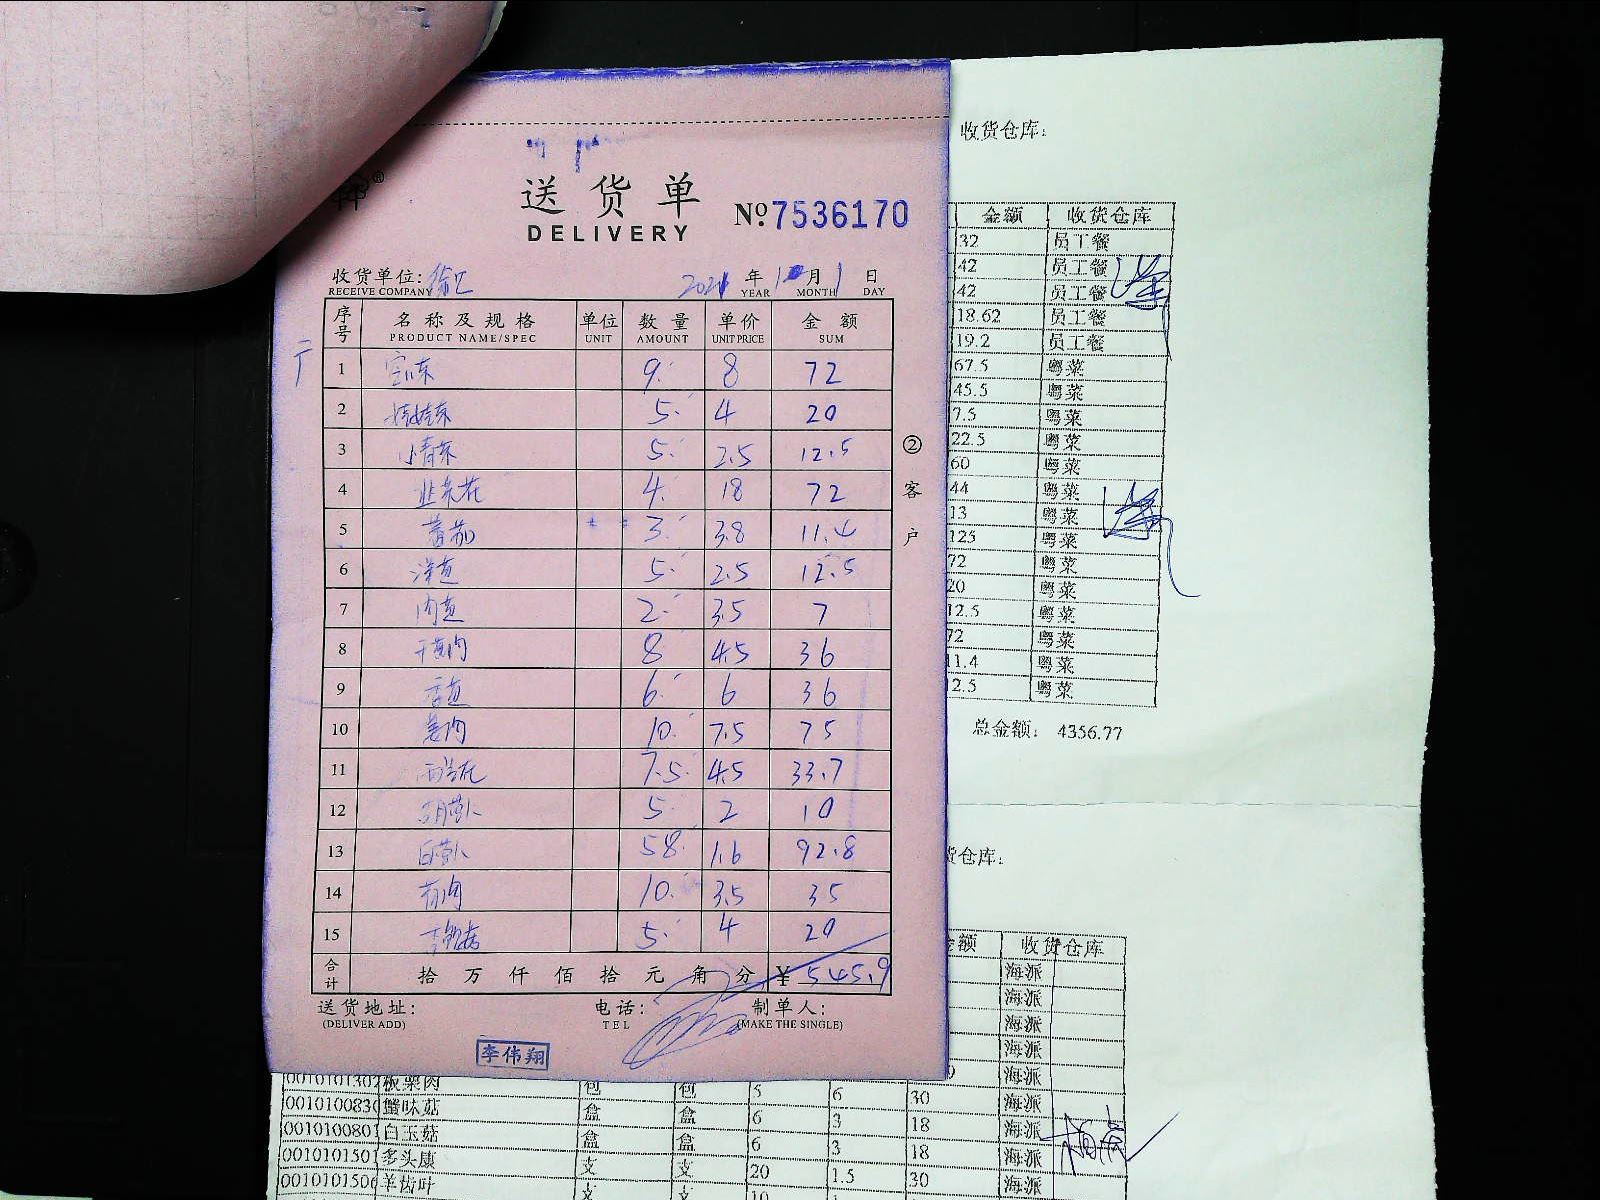 送货单
DELIVERY
№ 7536170
收货单位:
RECEIVE COMPANY
2021 年 月 1 日
YEAR MONTH DAY
序号 名称及规格 单位 数量 单价 金额
PRODUCT NAME/SPEC UNIT AMOUNT UNIT PRICE SUM
1 9 8 72
2 娃娃菜 5 4 20
3 小青菜 5 2.5 12.5
4 韭菜花 4 18 72
5 蕃茄 3 3.8 11.4
6 洋葱 5 2.5 12.5
7 肉葱 2 3.5 7
8 8 4.5 36
9 香葱 6 6 36
10 姜肉 10 7.5 75
11 西兰花 7.5 4.5 33.7
12 5 2 10
13 58 1.6 92.8
14 10 3.5 35
15 5 4 20
合计 拾 万 仟 佰 拾 元 角 分 ¥ 545.9
送货地址: 电话: 制单人:
(DELIVER ADD) TEL (MAKE THE SINGLE)
李伟翔
②客户
收货仓库:
金额 收货仓库
32 员工餐
42 员工餐
42 员工餐
18.62 员工餐
19.2 员工餐
67.5 粤菜
45.5 粤菜
7.5 粤菜
22.5 粤菜
60 粤菜
44 粤菜
13 粤菜
125 粤菜
72 粤菜
20 粤菜
12.5 粤菜
72 粤菜
11.4 粤菜
2.5 粤菜
总金额: 4356.77
货仓库:
金额 收货仓库
海派
海派
海派
海派
0010101302 板栗肉 包 包 5 6 30 海派
001010083 蟹味菇 盒 盒 6 3 18 海派
0010100801 白玉菇 盒 盒 6 3 18 海派
0010101501 多头康 支 支 20 1.5 30 海派
0010101506 羊齿叶 支 支 10 海派